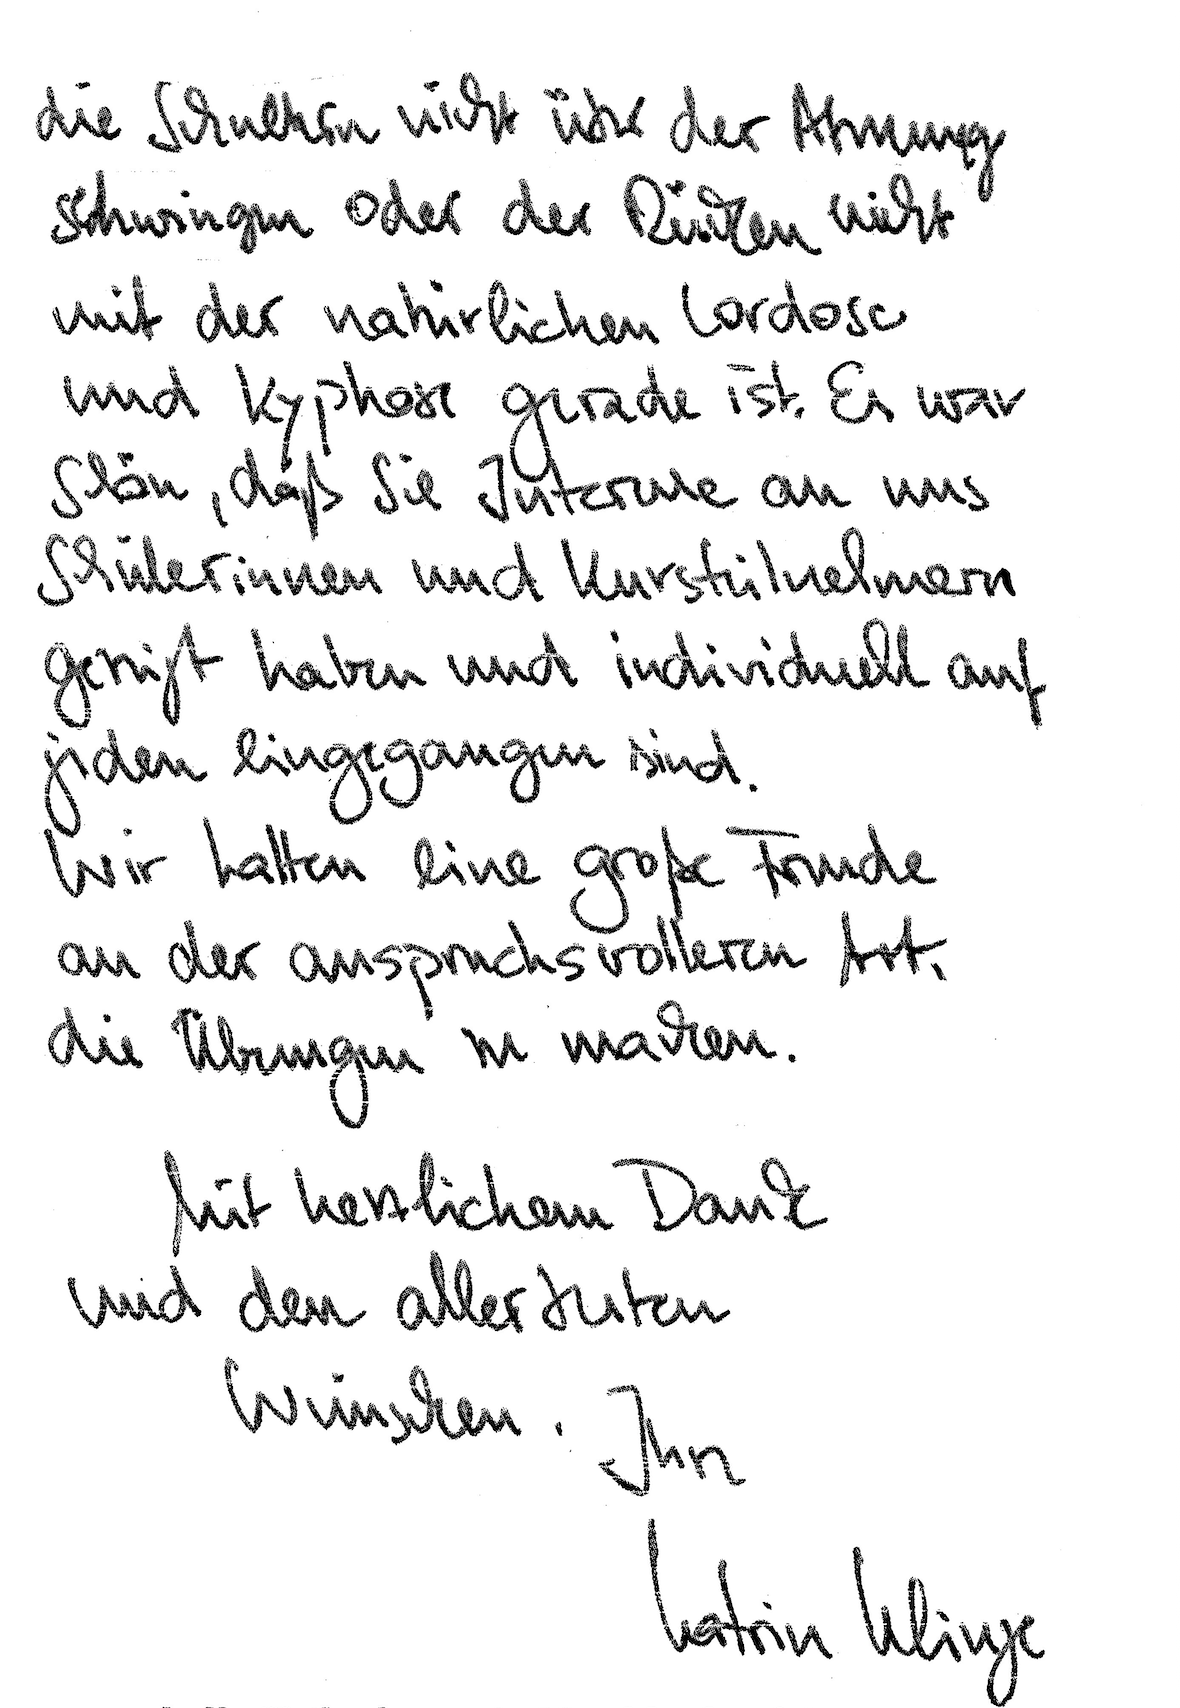 die Schultern nicht über der Atmung
schwingen oder der Rücken nicht
mit der natürlichen Lordose
und Kyphose gerade ist. Es war
schön, daß Sie Interesse an uns
Schülerinnen und Kursteilnehmern
gezeigt haben und individuell auf
jeden eingegangen sind.
Wir hatten eine große Freude
an der anspruchsvolleren Art,
die Übungen zu machen.
Mit herzlichem Dank
und den allerbesten
Wünschen.
Ihre
Katrin Klinge